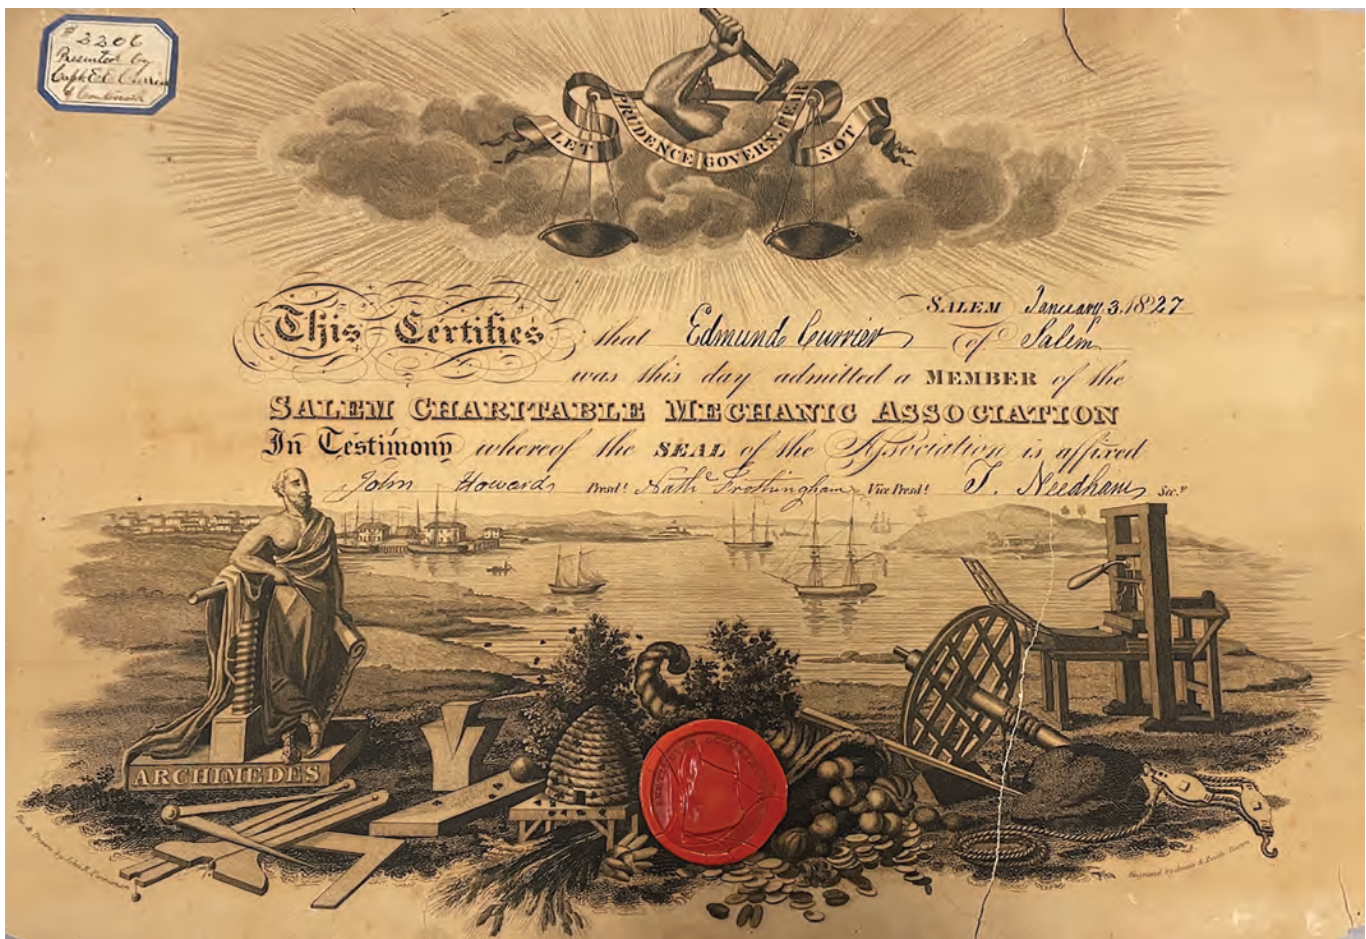 # 2206
Presented by
Capt E E Currier
LET PRUDENCE GOVERN, FEAR NOT
SALEM January 3. 1827
This Certifies that Edmund Currier of Salem
was this day admitted a MEMBER of the
SALEM CHARITABLE MECHANIC ASSOCIATION
In Testimony whereof the SEAL of the Association is affixed
John Howard Presdt. Nathl Frothingham Vice Presdt. J. Needham Secy.
ARCHIMEDES
Drawn by John R.
Engraved by Annin & Smith Boston